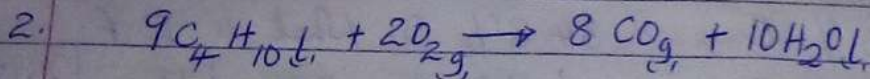 2. 9C₄H₁₀l. + 2O₂g. → 8CO g. + 10H₂O l.